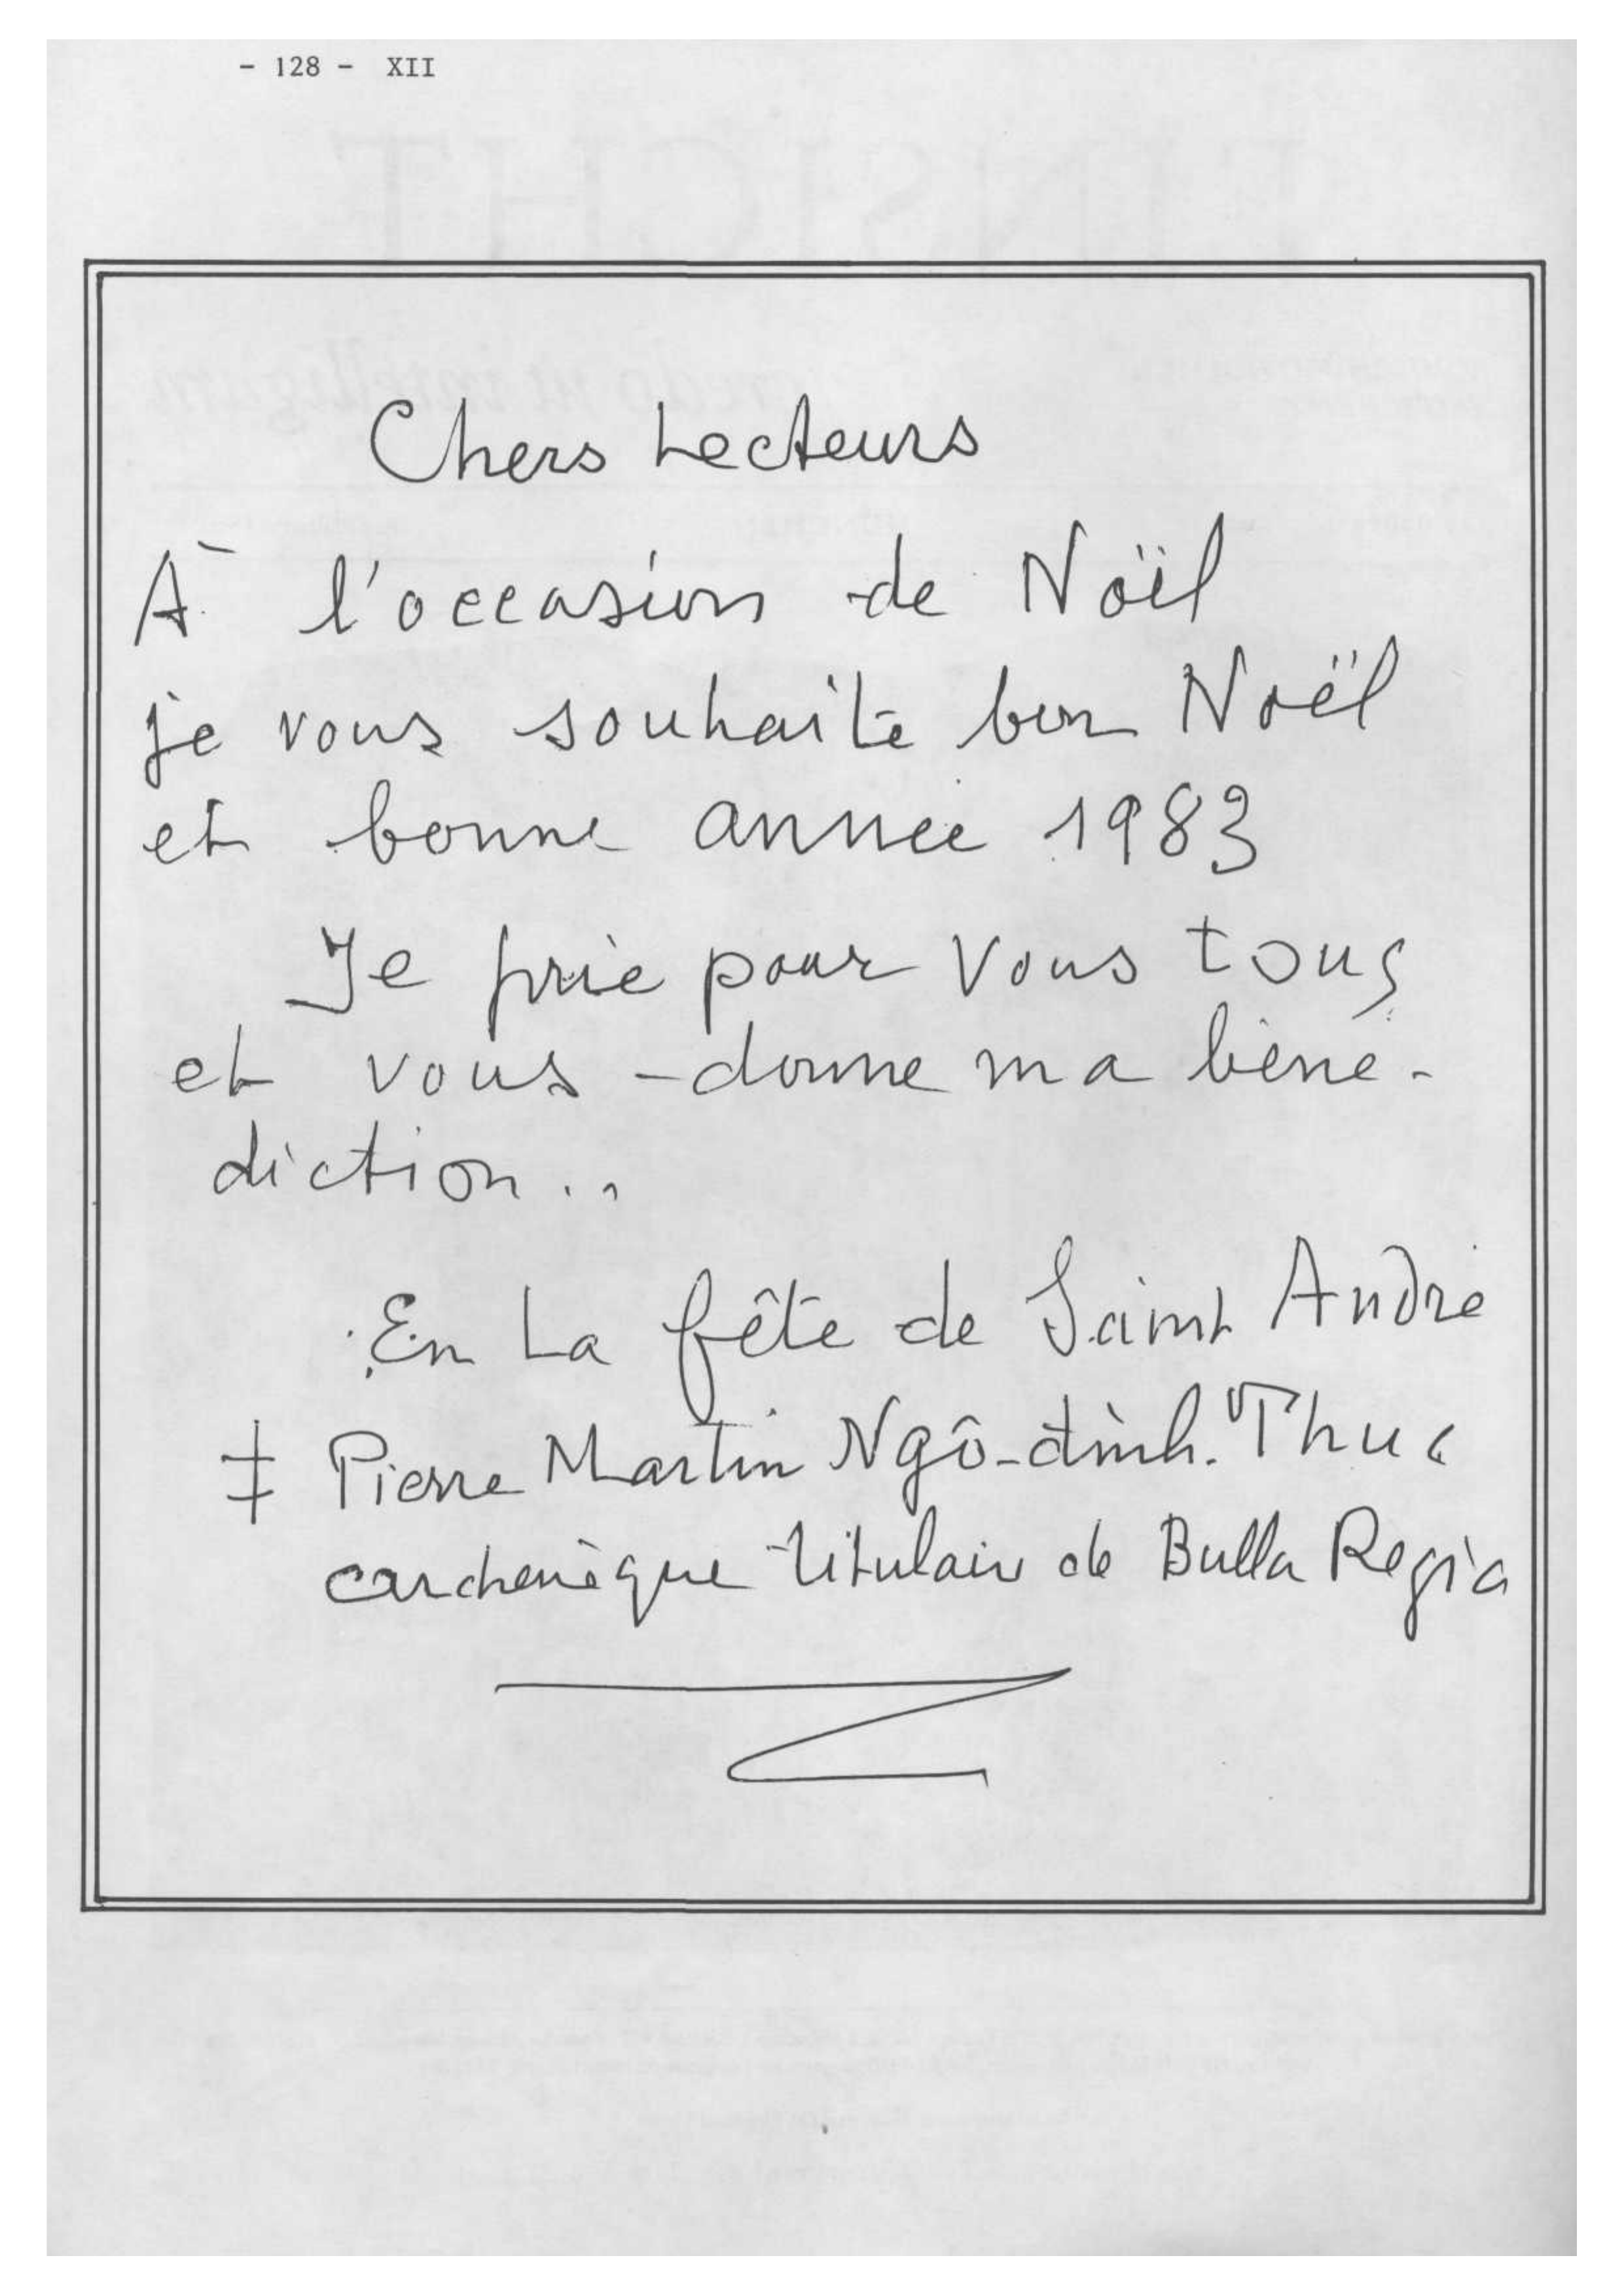 - 128 - XII
Chers Lecteurs
À l'occasion de Noël
je vous souhaite bon Noël
et bonne année 1983
Je prie pour vous tous
et vous donne ma béné-
diction..
En La fête de Saint André
‡ Pierre Martin Ngô-đình-Thuc
archevêque titulaire de Bulla Regia